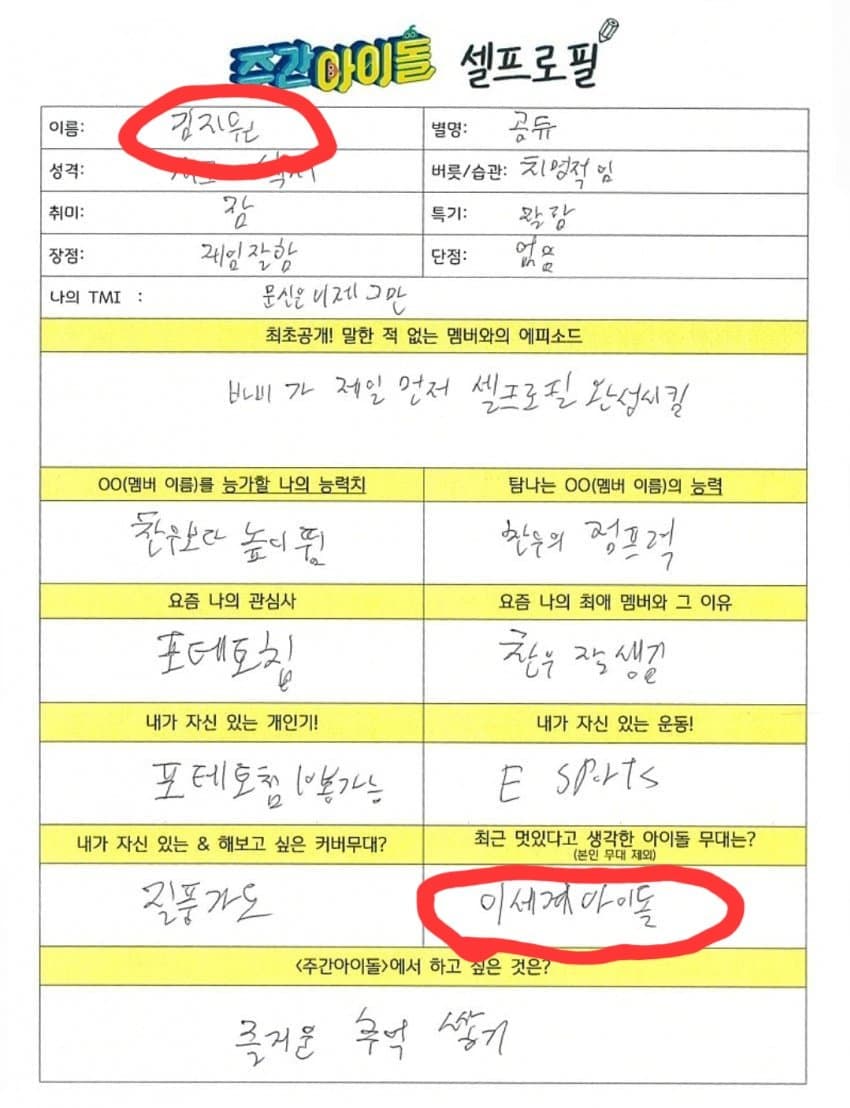 주간아이돌 셀프로필
이름: 김지원 별명: 곰듀
성격: 버릇/습관: 치명적임
취미: 잠 특기: 말랑
장점: 게임잘함 단점: 없음
나의 TMI : 문신은 이제 그만
최초공개! 말한 적 없는 멤버와의 에피소드
바비가 제일 먼저 셀프로필 완성시킴
OO(멤버 이름)를 능가할 나의 능력치 탐나는 OO(멤버 이름)의 능력
찬우보다 높이 뜀 찬우의 점프력
요즘 나의 관심사 요즘 나의 최애 멤버와 그 이유
포테토칩 찬우 잘생김
내가 자신 있는 개인기! 내가 자신 있는 운동!
포테토칩 10봉가능 E sports
내가 자신 있는 & 해보고 싶은 커버무대? 최근 멋있다고 생각한 아이돌 무대는?
(본인 무대 제외)
질풍가도 이세계아이돌
<주간아이돌>에서 하고 싶은 것은?
즐거운 추억 쌓기